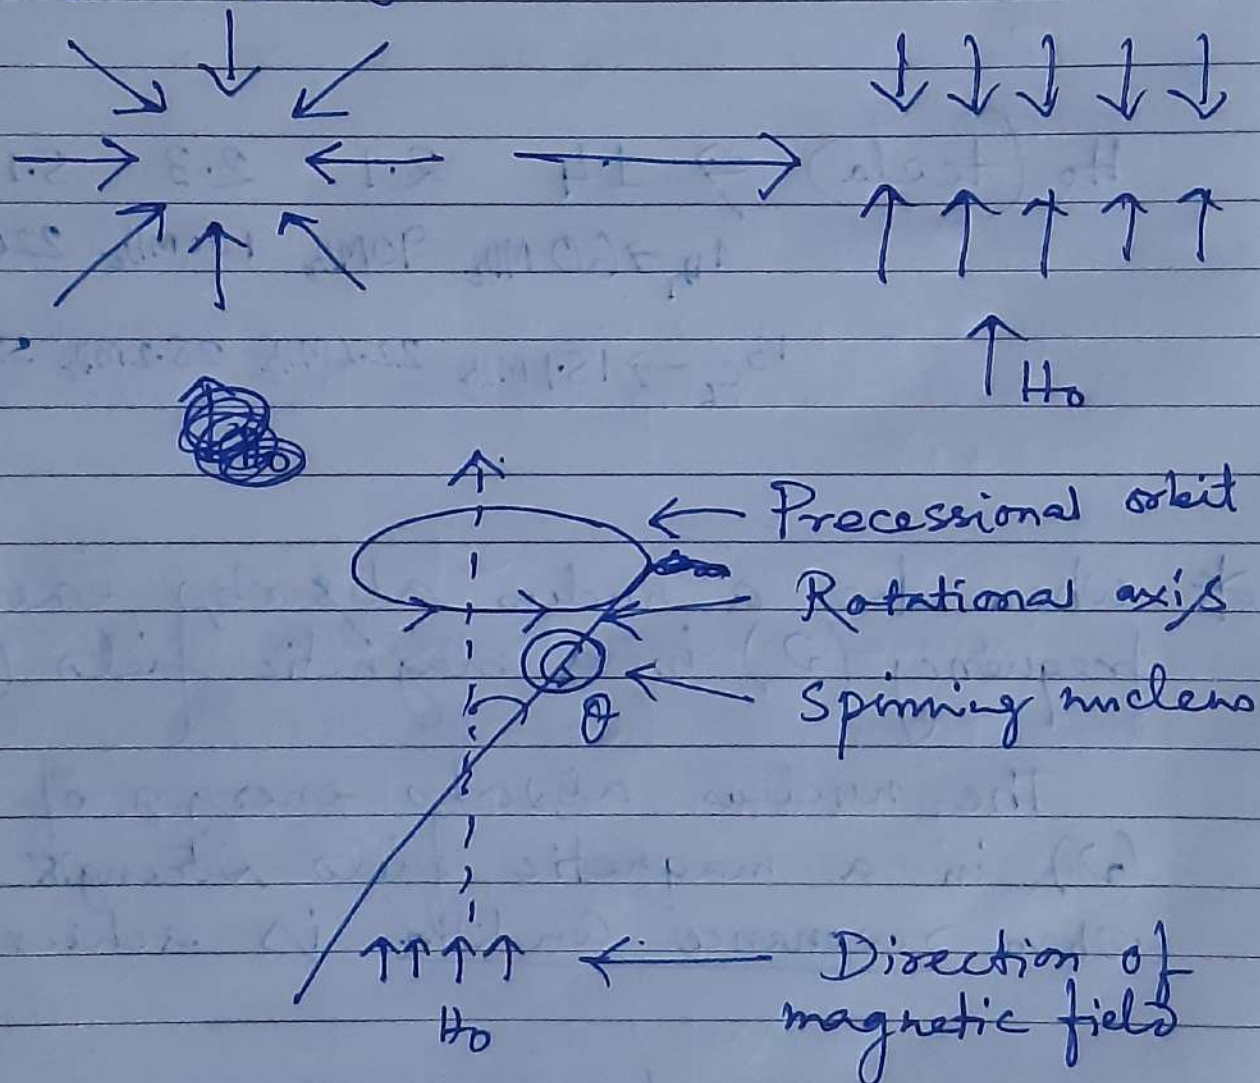 H₀
Precessional orbit
Rotational axis
Spinning nucleus
θ
H₀
Direction of
magnetic field